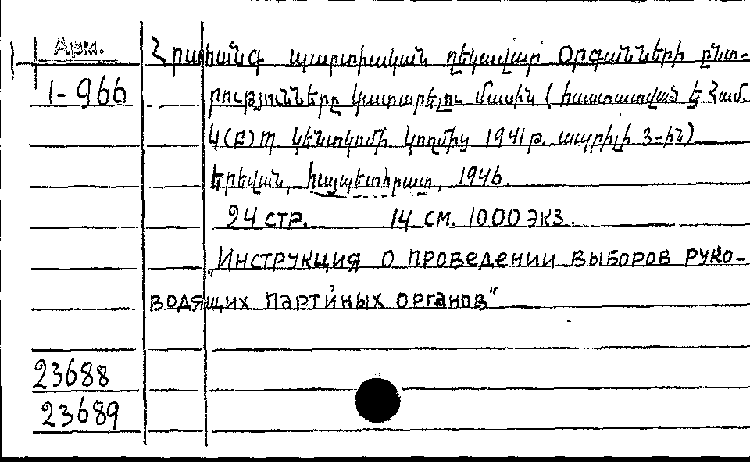 Арм.
Հրահանգ պարտիական ղեկավար օրգանների ընտ-
1-966
րությունները կատարելու մասին (հաստատված է Համ
Կ(Բ)Պ Կենտկոմի կողմից 1941թ. ապրիլի 3-ին)
Երեվան, հայպետհրատ, 1946.
24 стр. 14 см. 1000 экз.
"Инструкция о проведении выборов руко-
водящих партийных органов"
23688
23689